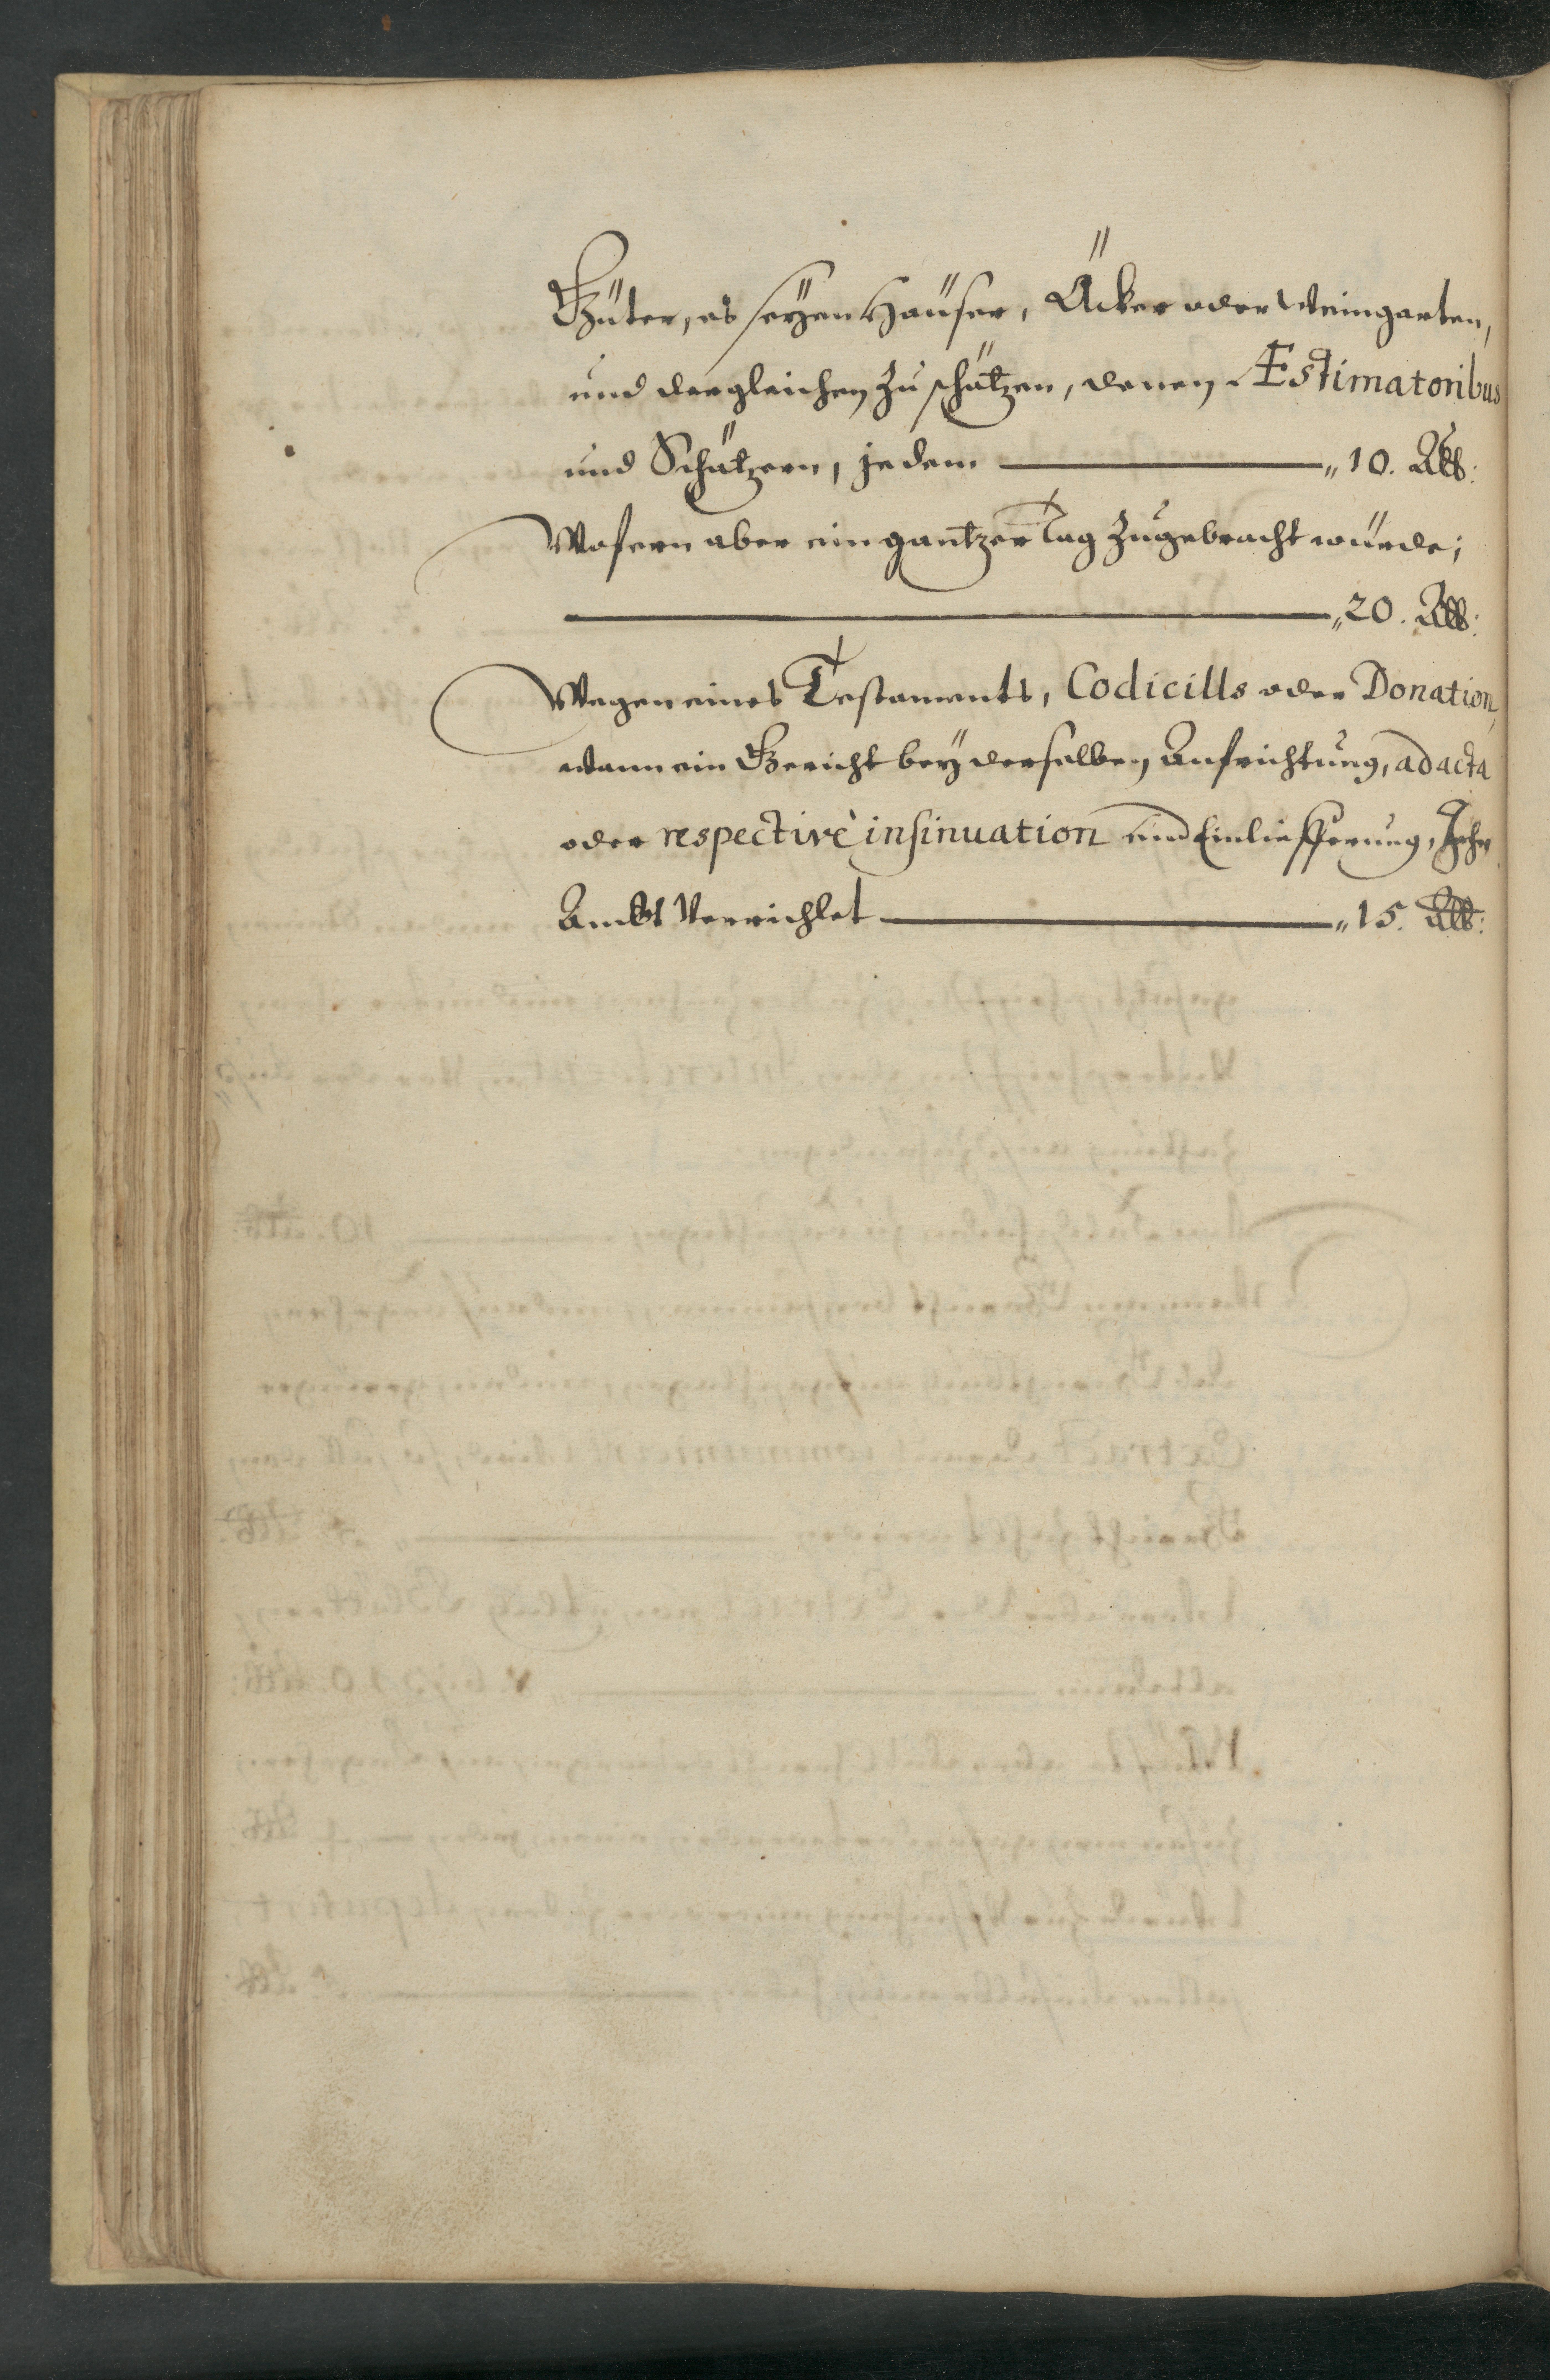 Güter, es seÿen Haüser, Äcker oder Weingarten,
und dergleichen zu schätzen, denen Æstimatoribus
und Schätzern, jedem ———— „10. Alb:
Wofern aber ein gantzer Tag zugebracht würde;
———— „20. Alb:
Wegen eines Testaments, Codicills oder Donation,
wann ein Gericht beÿ derselben Aufrichtung, ad acta
oder respectivè insinuation und Einliefferung, Ihr
Ambt Verrichtet ———— „15. Alb: